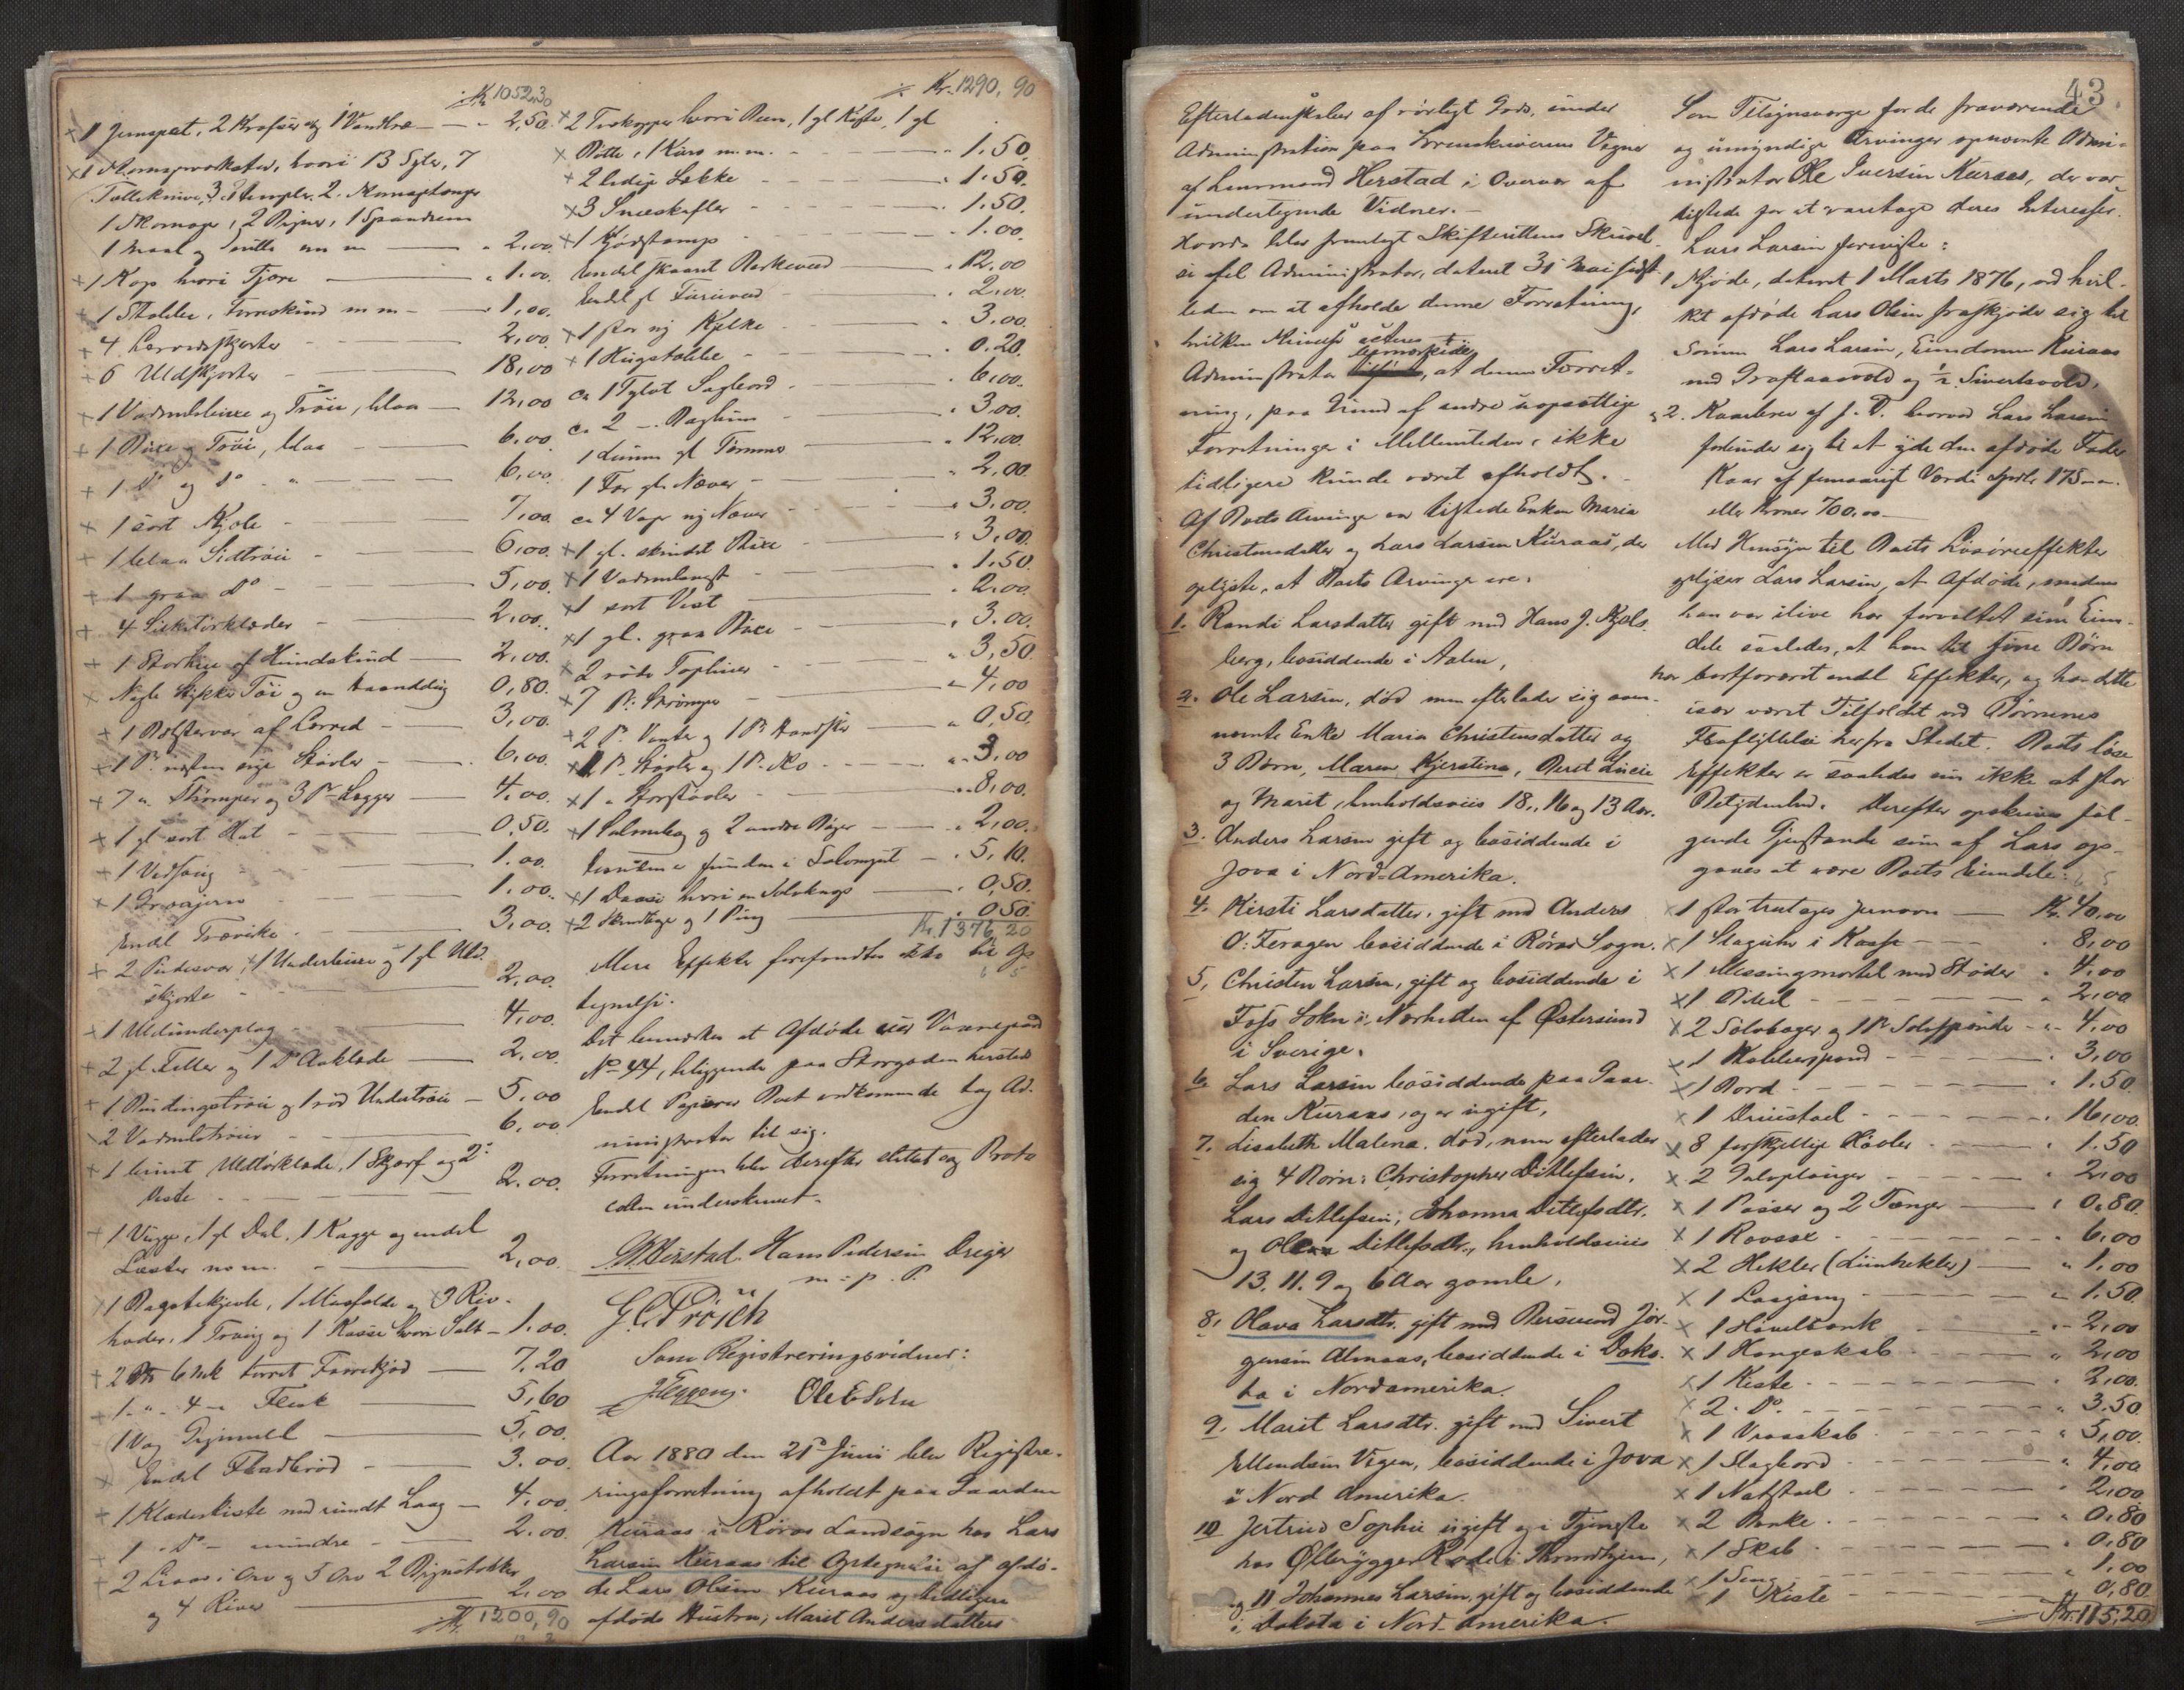 ÷ Kr 1052,30
+ 1 Jernspet, 2 Krafser og 1 Vandtræ — 2,50.
×1 Skomagerkasse, hvori 13 Syler, 7
Tælleknive, 3 Stempler, 2 Skomagertænger
1 Skomager, 2 Piger, 1 Spandrem
1 Maal og Smitte m m — " 2,00
+ 1 Kop hvori Tjære — " 1,00.
+ 1 Stabbe, Faareskind m m — " 1,00.
+ 4 Lærredsskjorter — 2,00
+ 6 Uldskjorter — 18,00
+ 1 Vadmelsbuxe og Trøie, blaa — 12,00
+ 1 Buxe og Trøie, blaa — 6,00
+ 1 Do og Do " — 6,00.
+ 1 sort Kjole — 7,00
+ 1 blaa Sidtrøie — 6,00.
+ 1 graa Do — 5,00.
+ 4 Silketørklæder — 2,00.
+ 1 Storhue af Hundskind — 2,00.
× Nogle Stykker Tøi og en Haanddug 0,80.
+ 1 Bolstervar af Lerred — 3,00.
+ 1 Pr. næsten nye Støvler — 6,00.
+ 7 " Strømper og 3 Pr Lægger — 4,00.
+ 1 gl sort Hat — 0,50.
× 1 Vedsaug — 1.00.
× 1 Groajern — 1,00.
Endel Trævirke — 3,00.
+ 2 Pudevar, 1 Underbuxe og 1 gl Uld-
skjorte — 2,00.
+ 1 Uldunderplag — 4,00.
+ 2 gl Feller og 1 Do Aaklæde — 2,00.
+ 1 Bindingstrøie og 1 rød Undertrøie — 5,00
× 2 Vadmelstrøier — 6,00
+ 1 brunt Uldtørklæde, 1 Skjærf og 2
Veste — 2.00.
+ 1 Vugge, 1 gl Dal, 1 Kagge og endel
Læster m m. — 2,00.
× 1 Bagstekjevle, 1 Musfælde og 3 Riv-
hoder, 1 Traug og 1 Kasse hvori Salt — 1.00.
+ 2 Bp 6 Mk tørret Faarekjød — 7,20
+ 1. " 4 " Flesk — 5,60
1 Vog Bygmel — 5,00.
× Endel Fladbrød — 3.00.
+ 1 Klædeskiste med rundt Laag — 4,00.
+ 1 Do — mindre — 2.00.
+ 2 Ljaaer i Orv og 5 Orv 2 Brynstokker
og 4 River — 2,00
÷ Kr 1290,90
÷ Kr. 1290,90
× 2 Trækopper hvori Been, 1 gl Kiste, 1 gl
× Bøtte, 1 Kurv m.m. — " 1.50.
+ 2 ledige Sække — " 1.50.
×3 Sneeskufler — " 1.50.
+ 1 Kjødstamp — " 1.00.
Endel skaaret Birkeved — " 12,00
Endel gl Furuved — " 2,00.
×1 stor ny Kjelke — " 3.00.
+ 1 Hugstabbe — " 0.20.
ca 1 Tylvt Sagbord — " 6,00.
ca 2 — Baghun — " 3.00.
1 Lunne gl Tømmer — " 12,00.
1 For gl. Næver — " 2,00
ca 4 Voger ny Næver — " 3,00.
×1 gl. skindet Buxe — " 3,00.
×1 Vadmelsvest — " 1.50
×1 sort Vest — " 2,00.
×1 gl. graa Buxe — " 3.00.
× 2 røde Tophuer — " 3,50
×7 Pr. Strømper — " 4,00
+ 2 Pr. Vanter og 1 Pr Handsker — " 0,50.
×2 Pr. Støvler og 1 Pr. Sko — " 3,00
×1 " Storstøvler — " 8,00.
×1 Salmebog og 2 andre Bøger — " 2,00.
Desuden er funden i Sølvmynt — " 5,10.
×1 Daase hvori en Sølvknap — " 0,50.
×2 Skindlæge og 1 Pung — " 0,50.
Kr. 1376,20
Mere Effekter forefandtes ikke til Op-
tegnelse.
Det bemærkes at Afdøde eier Vaanegaard
No 44, beliggende paa Storgaden hersteds
Endel Papirer Boet vedkommende tog Ad-
ministrator til sig.
Forretningen blev derefter sluttet og Proto-
collen underskrevet.
M Herstad. Hans Pedersen Dreyer
m. p. P.
G. C. Prösch
Som Registreringsvidner:
J. Eggen. Ole E Solu
Aar 1880 den 21de Juni blev Registre-
ringsforretning afholdt paa Gaarden
Kuraas i Røros Landsogn hos Lars
Larsen Kuraas til Optegnelse af afdø-
de Lars Olsen Kuraas og tidligere
afdøde Hustru, Marit Andersdatters
43.
Efterladenskaber af rørligt Gods, under
Administration paa Sorenskriverens Vegne
af Lensmand Herstad i Overvær af
undertegnede Vidner.—
Hvorda blev fremlagt Skifterettens Skrivel-
se til Administrator, dateret 31 Mai sidst-
leden om at afholde denne Forretning,
hvilken Skrivelse acteres
bemærkede
Administrator, at denne Forret-
ning, paa Grund af andre uopsættlige
Forretninger i Mellemtiden, ikke
tidligere kunde været afholdt. —
Af Boets Arvinger var tilstede Enken Maria
Christensdatter og Lars Larsen Kuraas, der
oplyste, at Boets Arvinger ere:
1. Randi Larsdatter gift med Hans J. Kjøls-
berg, bosiddende i Aalen,
2. Ole Larsen, død men efterlader sig oven-
nævnte Enke Maria Christensdatter og
3 Børn, Maren Kjerstina, Beret Lucie
og Marit, henholdsviis 18, 16 og 13 Aar.
3. Anders Larsen gift og bosiddende i
Jova i Nord-Amerika.
4. Kirsti Larsdatter, gift med Anders
O. Feragen bosiddende i Røros Sogn.
5, Christen Larsen, gift og bosiddende i
Fors Sokn i Nærheden af Østersund
i Sverige.
6. Lars Larsen bosiddende paa Gaar-
den Kuraas, og er ugift,
7. Lisabeth Malena, død, men efterlader
sig 4 Børn: Christopher Ditlefsen,
Lars Ditlefsen, Johanna Ditlefsdtr.
og Olea Ditlefsdtr., henholdsviis
13. 11. 9 og 6 Aar gamle,
8, Olava Larsdtr. gift med Bersvend Jør-
gensen Almaas, bosiddende i Dako-
ta i Nordamerika.
9. Marit Larsdtr. gift med Sivert
Ellendsen Vigen, bosiddende i Jova
i Nord Amerika.
10 Jertrud Sophie ugift og i Tjeneste
hos Ølbrygger Rode i Throndhjem,
og 11 Johannes Larsen, gift og bosiddende
i Dakota i Nord-Amerika.
Som Tilsynsværge for de fraværende
og umyndige Arvinger opnævnte Admi-
nistrator Ole Iversen Kuraas, der var
tilstede for at varetage deres Interesser.
Lars Larsen foreviste:
1 Skjøde, dateret 1 Marts 1876, ved hvil-
ket afdøde Lars Olsen fraskjøder sig til
Sønnen Lars Larsen, Eiendommen Kuraas
med Graftaasvold og 1/2 Sivertsvold,
og 2. Kaarbrev af s. D. hvorved Lars Larsen
forbinder sig til at yde den afdøde Fader
Kaar af femaarigt Værdi Spdl. 175 — " —
eller Kroner 700.00 —
Med Hensyn til Boets Løsøreeffekter
oplyser Lars Larsen, at Afdøde, medens
han var ilive har forvaltet sine Eien-
dele saaledes, at han til sine Børn
har bortforæret endel Effekter, og har dette
især været Tilfældet ved Børnenes
Fraflyttelse herfra Stedet. Boets løse
Effekter er saaledes nu ikke af stor
Betydenhed. Derefter opskrives føl-
gende Gjenstande som af Lars op-
gaves at være Boets Eiendele:
×1 stor treetages Jernovn — Kr. 40,00
× 1 Slaguhr i Kasse — " 8,00
× 1 Messingmortel med Støder " 4,00
×1 Bibel — " 2,00
× 2 Sølvbæger og 1 Pr Sølvspænde — " 4,00
× 1 Kobberspand — " 3,00
×1 Bord — " 1.50
× 1 Dreiestoel — " 16,00.
× 8 forskjellige Høvler — " 1.50
× 2 Gulvplanger — " 2,00
× 1 Passer og 2 Tænger — " 0.80.
× 1 Roosse — " 6,00
×2 Hekler (Linhekler) — " 1,00
× 1 Langsaug — " 1.50.
× 1 Høvelbænk — " 2,00
× 1 Hengeskab — " 2,00
×1 Kiste — " 2,00.
× 2. Do — " 3.50.
× 1 Vraaskab — " 5,00.
×1 Slagbord — " 4,00
×1 Natstoel — " 2,00
× 2 Bænke — " 0,80
×1 Skab — " 0,80
× 1 Seng — " 1,00
× 1 Kiste — " 0,80
÷ Kr. 115,20